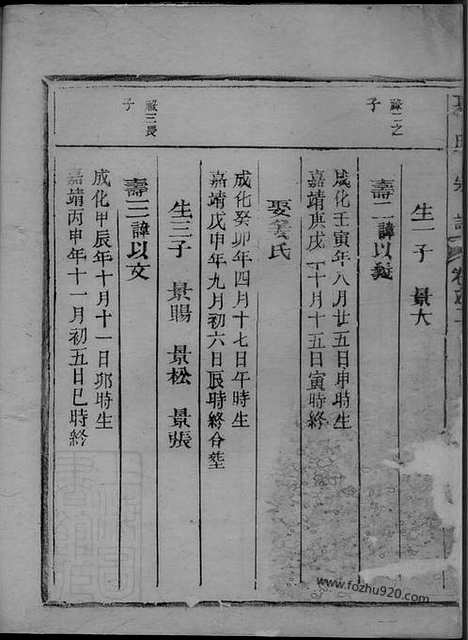 生一子 景大
祿二之子
壽二諱以義
成化壬寅年八月廿五日申時生
嘉靖庚戌年十月十五日寅時終
娶姜氏
成化癸卯年四月十七日午時生
嘉靖戊申年九月初六日辰時終合塋
生三子 景暘 景松 景張
祿三長子
壽三諱以文
成化甲辰年十月十一日卯時生
嘉靖丙申年十一月初五日巳時終
www.fozhu920.com